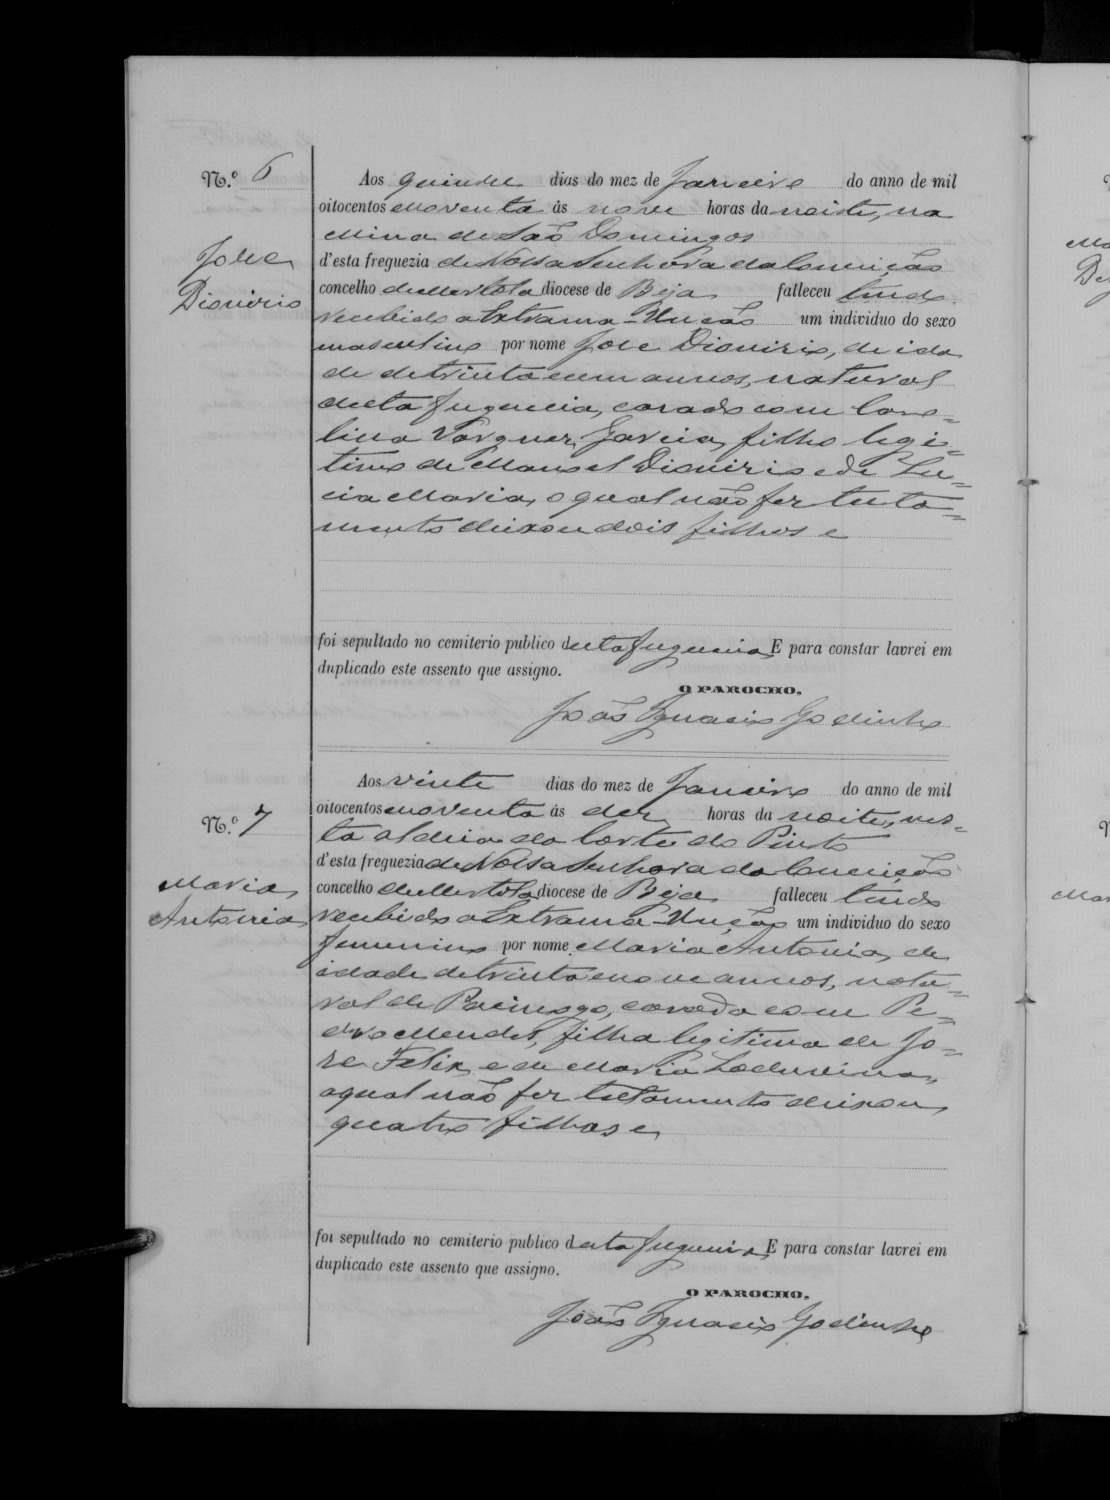 N.º 6
José
Dionisio
Aos quinze dias do mez de Janeiro do anno de mil
oitocentos e noventa ás nove horas da noite, na
Mina de São Domingos
d'esta freguezia de Nossa Senhora da Conceição
concelho de Mertola diocese de Beja falleceu tendo
recebido a Extrama-Unção um individuo do sexo
masculino por nome José Dionisio, de ida
de de trinta e um annos, natural
desta freguezia, casado com Caro=
lina Vasques Garcia, filho legi=
timo de Manoel Dionisio e de Lu=
cia Maria, o qual não fez testa=
mento deixou dois filhos e
foi sepultado no cemiterio publico desta freguezia E para constar lavrei em
duplicado este assento que assigno.
O PAROCHO,
João Ignacio Godinho
N.º 7
Maria
Antonia
Aos vinte dias do mez de Janeiro do anno de mil
oitocentos e noventa ás dez horas da noite, nes=
ta aldeia da Corte do Pinto
d'esta freguezia de Nossa Senhora da Conceição
concelho de Mertola diocese de Beja falleceu tendo
recebido a Extrama-Unção um individuo do sexo
femenino por nome Maria Antonia, de
idade de trinta e nove annos, natu=
ral de casada com Pe=
dro Mendes, filha legitima de Jo=
sé Felix e de Maria
a qual não fez testamento deixou
quatro filhos e
foi sepultado no cemiterio publico desta freguezia E para constar lavrei em
duplicado este assento que assigno.
O PAROCHO,
João Ignacio Godinho